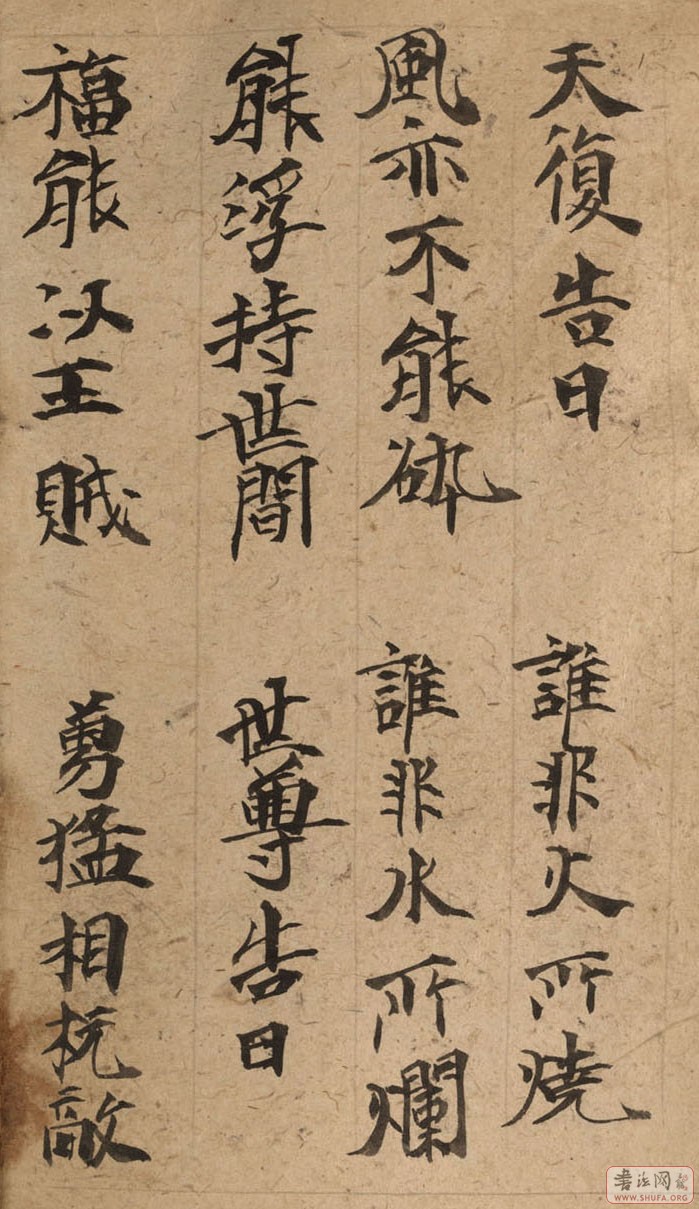 天復告曰　誰非火所燒
風亦不能砕　誰非水所爛
能浮持世間　世尊告曰
福能以王賊　勇猛相抗敵
書法网
WWW.SHUFA.ORG